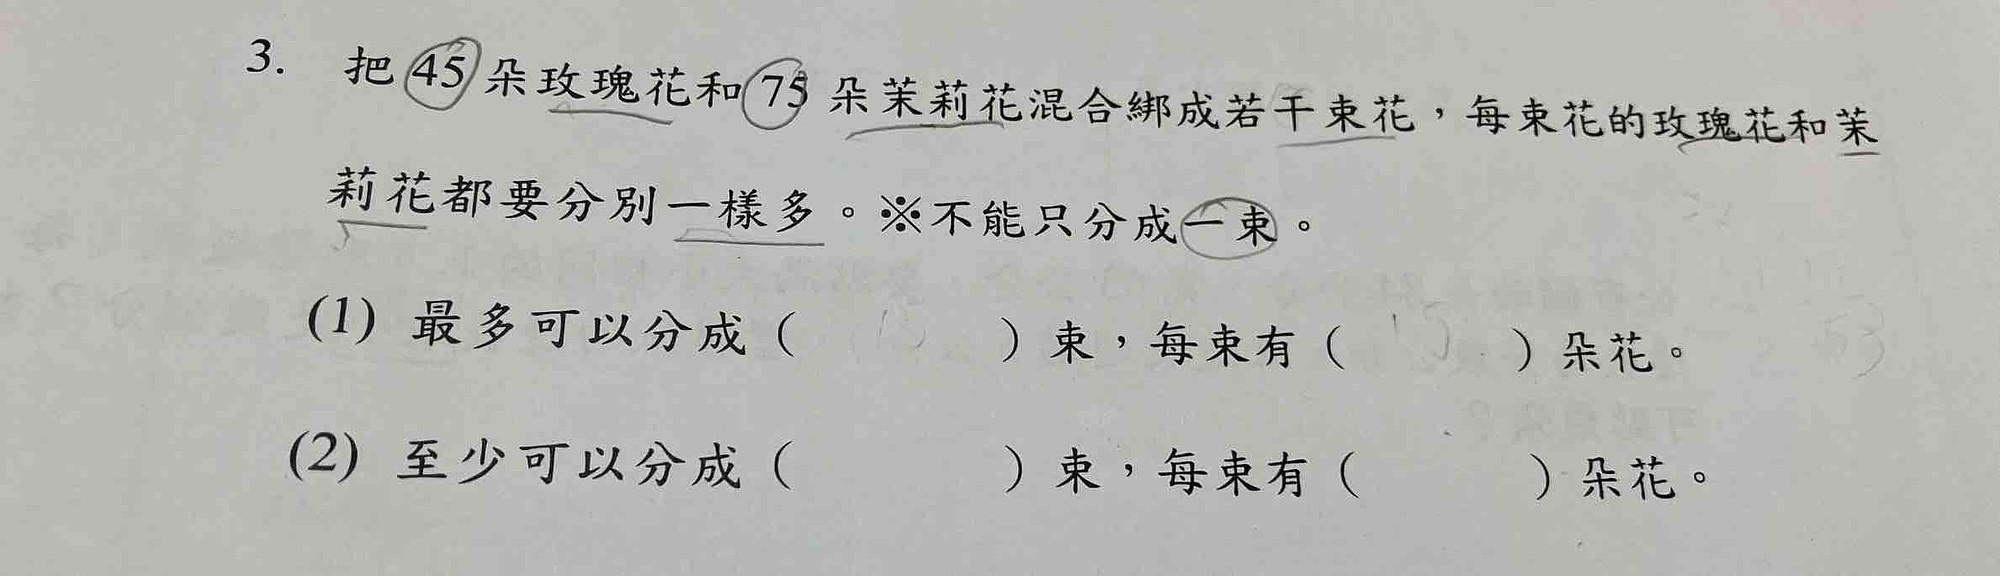 3. 把45朵玫瑰花和75朵茉莉花混合綁成若干束花，每束花的玫瑰花和茉
莉花都要分別一樣多。※不能只分成一束。
(1) 最多可以分成（ ）束，每束有（ ）朵花。
(2) 至少可以分成（ ）束，每束有（ ）朵花。